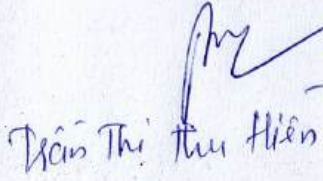 Trần Thị Thu Hiền